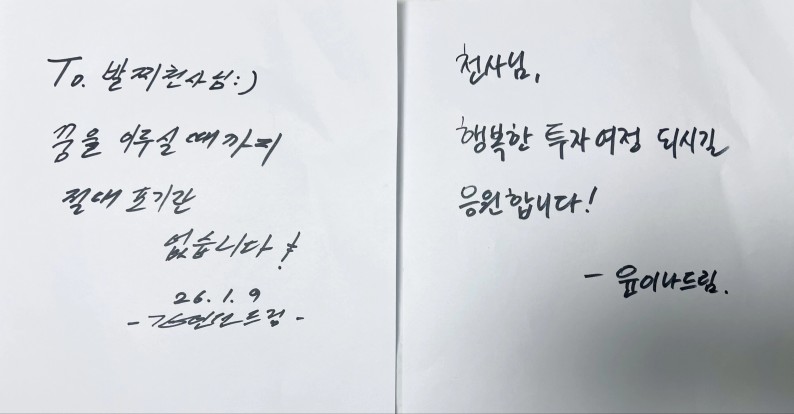 To. 발찌천사님:)
꿈을 이루실 때까지
절대 포기란
없습니다!
26. 1. 9
드림 -
천사님,
행복한 투자여정 되시길
응원합니다!
- 윤이나드림.